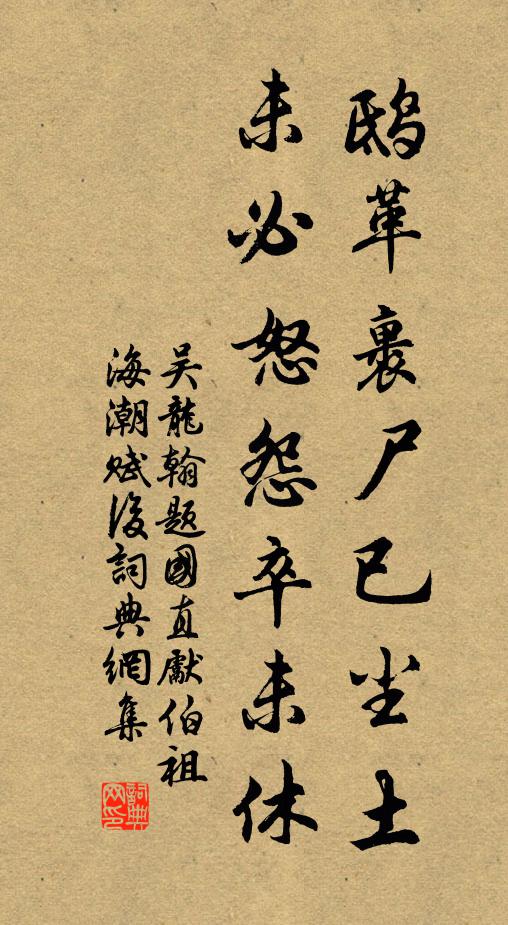 鴟革裹尸已尘土
未必怒怨卒未休
吴龍翰题國直獻伯祖
海潮赋後詞典網集
詞典
网印